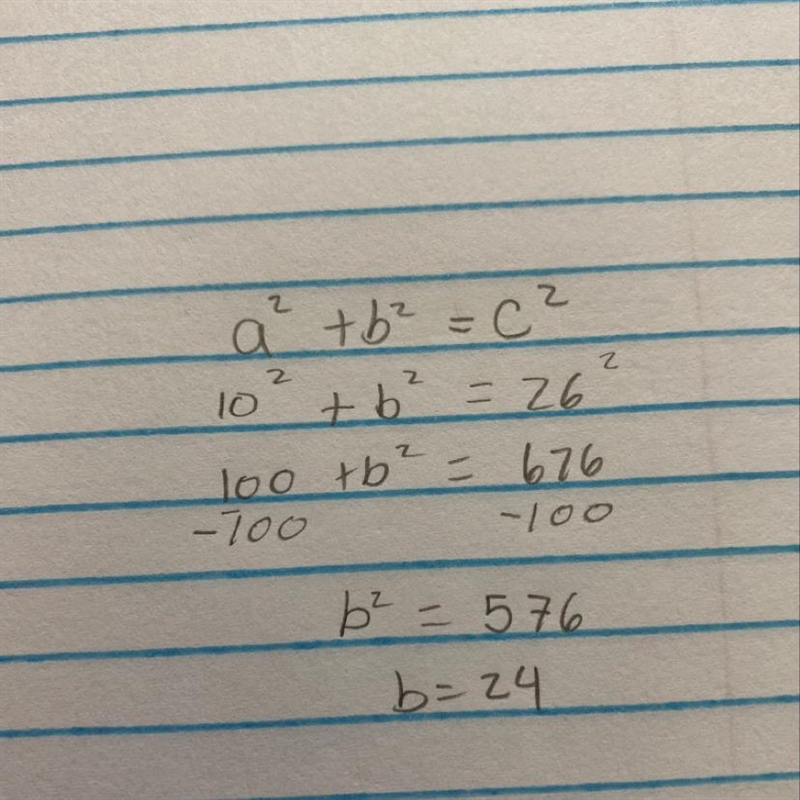 a² + b² = c²
10² + b² = 26²
100 + b² = 676
-100 -100
b² = 576
b = 24